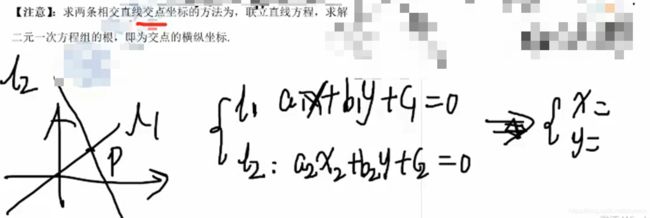 【注意】：求两条相交直线交点坐标的方法为，联立直线方程，求解
二元一次方程组的根，即为交点的横纵坐标.
l2
l1
P
{ l1 a1x+b1y+c1=0
l2: a2x2+b2y+c2=0
⇒ { x=
y=